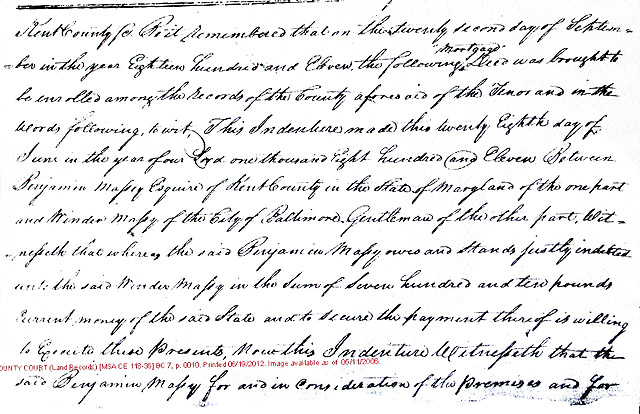 Kent County Sc. Be it remembered that on the twenty second day of Septem-
Mortgage
-ber in the year Eighteen hundred and Eleven the following Deed was brought to
be enrolled among the records of the County aforesaid of the Tenor and in the
words following, to wit, This Indenture made this twenty Eighth day of
June in the year of our Lord one thousand Eight hundred and Eleven Between
Benjamin Massy Esquire of Kent County in the State of Maryland of the one part
and Winder Massy of the City of Baltimore Gentleman of the other part, Wit-
-nesseth that whereas the said Benjamin Massy owes and stands justly indebted
unto the said Winder Massy in the sum of Seven hundred and ten pounds
Current money of the said State and to secure the payment thereof is willing
to Execute these Presents, Now this Indenture Witnesseth that the
OUNTY COURT (Land Records) [MSA CE 118-36] BC 7, p. 0010. Printed 06/19/2012. Image available as of 06/11/2006.
said Benjamin Massy for and in Consideration of the premises and for